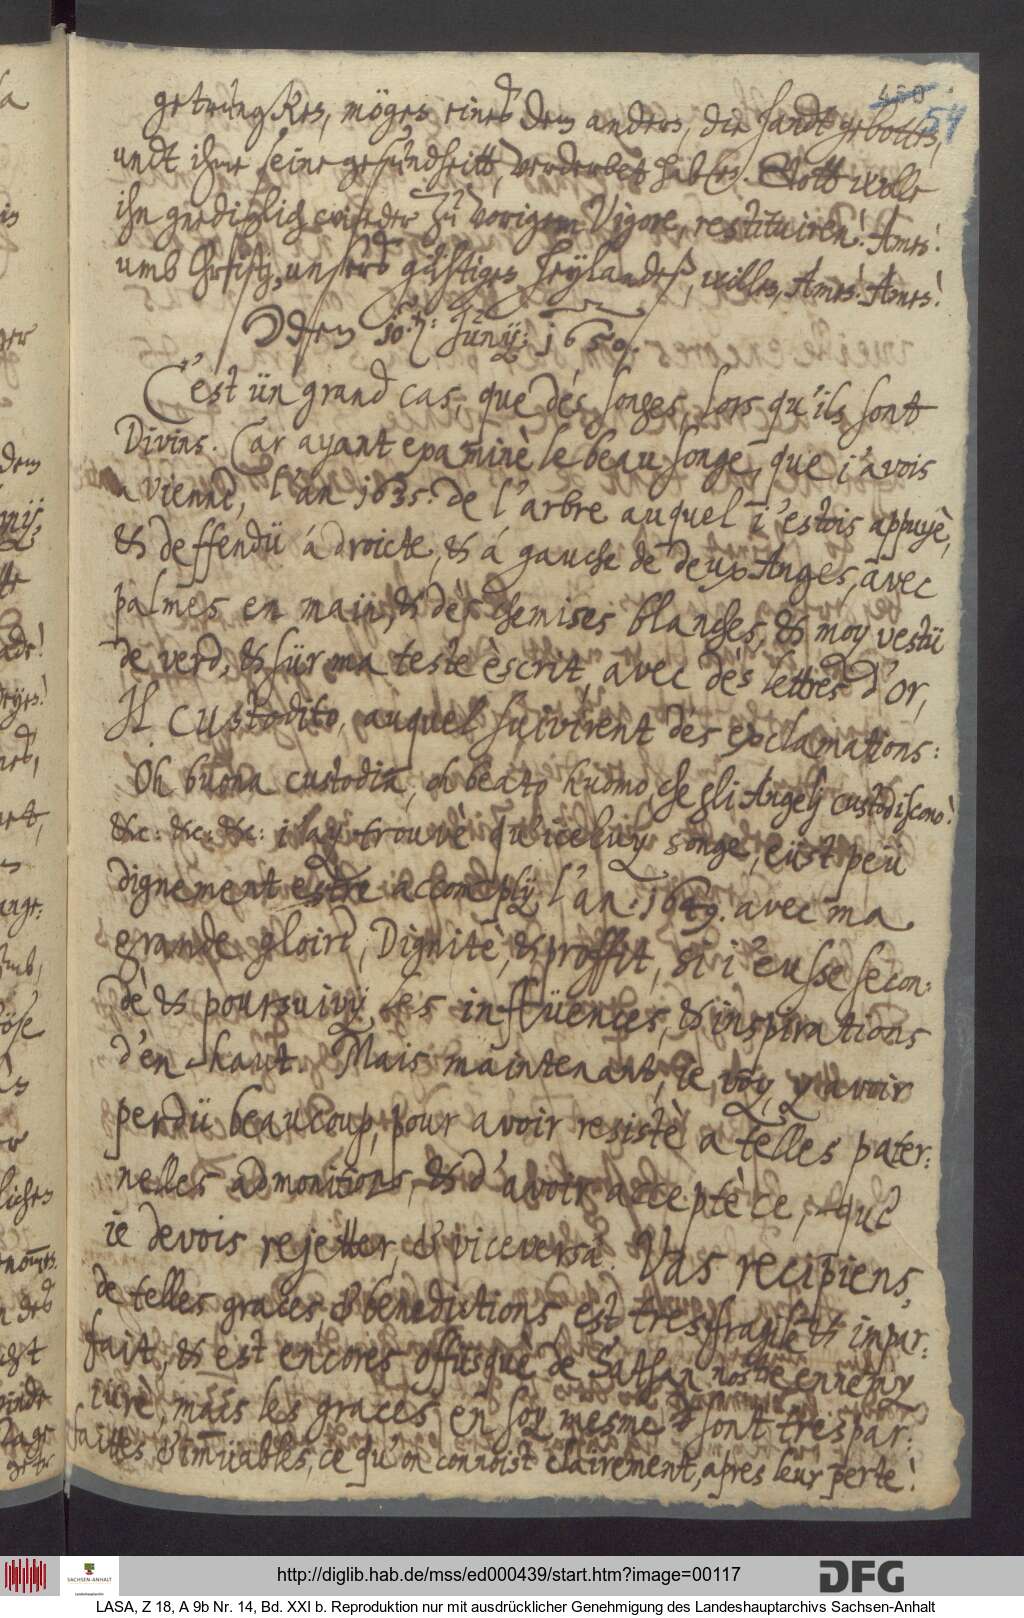 450 54
getruncken, mögen eines dem andern, die handt gebotten,
undt ihme seine gesundheitt, verderbet haben. Gott wolle
ihn gnediglich wieder zu vorigem Vigore, restituiren! Amen!
umb Christj, unsers gühtigen Heylandeß, willen, Amen! Amen!
den 10.ten: Junij: 1650.
C'est ün grand cas, que dès songes, lors qu'ils sont
Divins. Car ayant examinè le beau songe, que j'avois
a Vienne, l'an 1635. de l'arbre auquel j'estois appuyè,
& deffendü á droicte, & á gauche de deux Anges, avec
palmes en main, & dès chemises blanches, & moy vestü
de verd, & sür ma teste èscrit, avec dés lettres d'or,
Il Custodito, auquel suivirent dés exclamations:
Oh buona custodia, oh beato huomo, che gli Angelj custodiscono!
&c: &c: &c: i'ay trouvè qu'iceluy songe, eüst peü
dignement estre accomplÿ l'an: 1649. avec ma
grande gloire, Dignitè, & proffit, si j'eusse secon:
dè & poursuivÿ les inflüences, & inspirations
d'en-haut. Mais maintenant, ie, voy, y avoir
perdü beaucoup, pour avoir resistè a telles pater:
nelles admonitions, & d'avoir acceptè ce, que
ie devois rejetter, & viceversa. Vas recipiens,
de telles graces, & benedictions est tresfragile & impar:
fait, & est encores offüsquè de Sathan nostre ennemy
iurè, mais les graces en soy mesme sont trespar:
faittes & imüables, ce qu'on connoist clairement, apres leur perte!
http://diglib.hab.de/mss/ed000439/start.htm?image=00117
SACHSEN-ANHALT
DFG
LASA, Z 18, A 9b Nr. 14, Bd. XXI b. Reproduktion nur mit ausdrücklicher Genehmigung des Landeshauptarchivs Sachsen-Anhalt